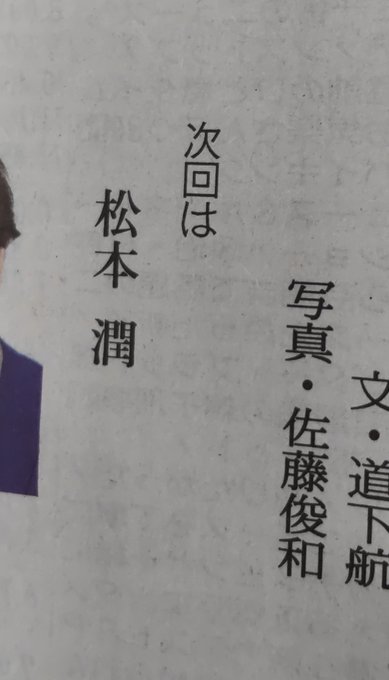 文・道下航
写真・佐藤俊和
次回は
松本 潤